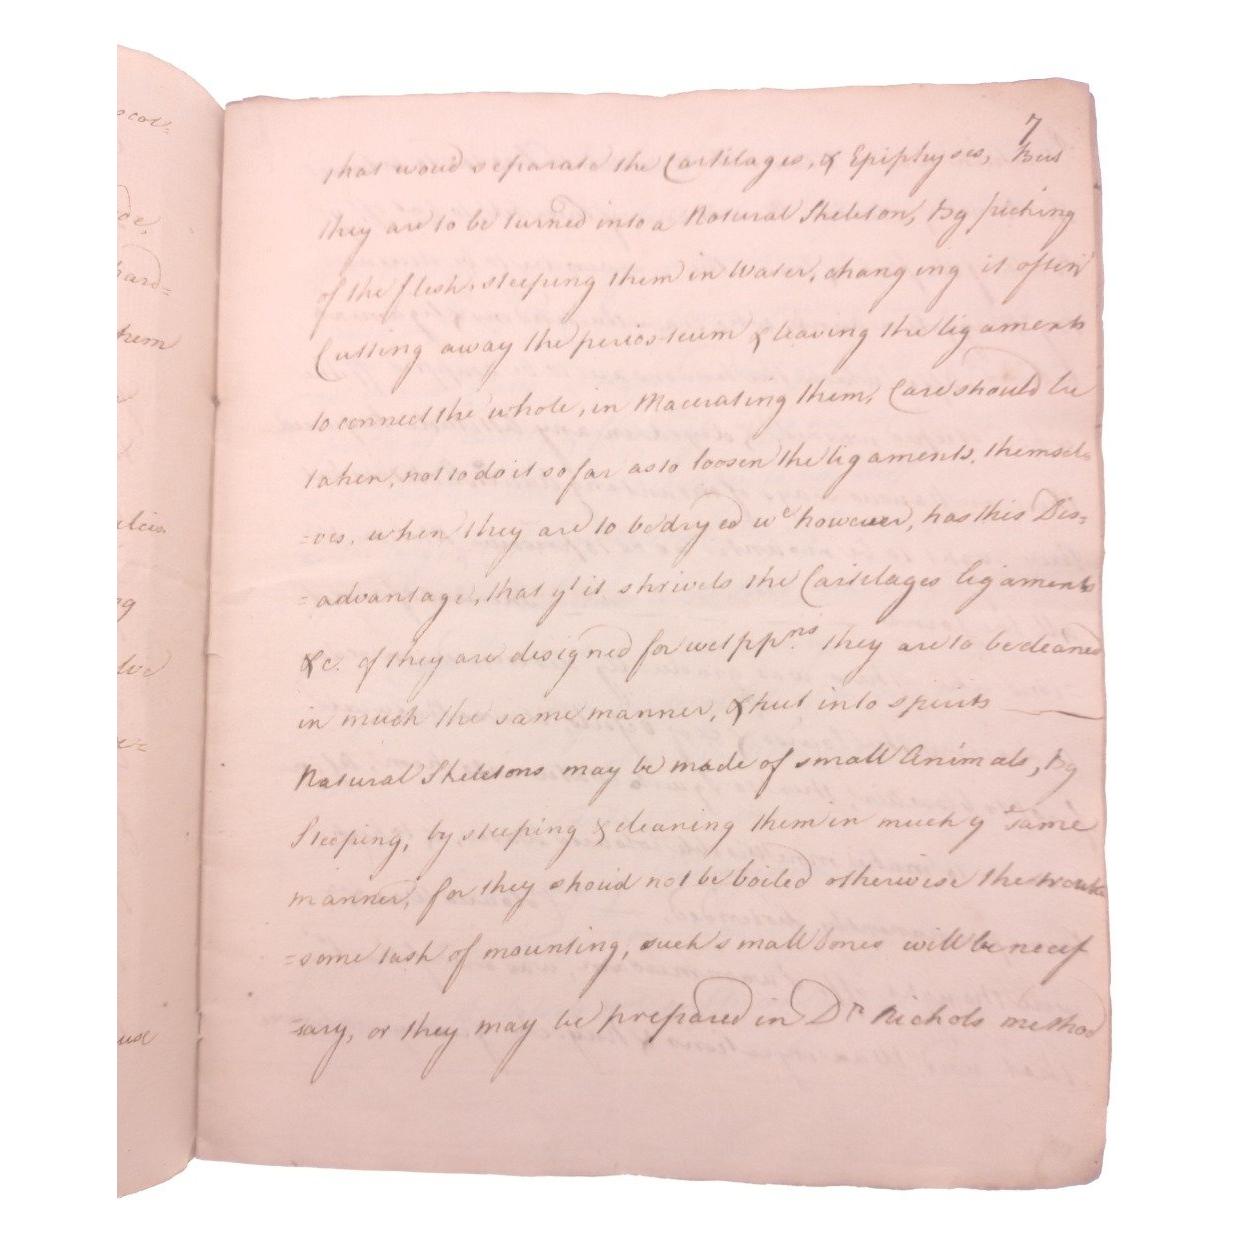 7
that woud separate the Cartilages, & Epiphyses, But
they are to be turned into a Natural Skeleton, By picking
of the flesh, steeping them in Water, changing it often
Cutting away the periosteum & leaving the ligaments
to connect the whole, in Macerating them, Care should be
taken, not to do it so far as to loosen the ligaments, themsel=
=ves, when they are to be dryed wc however, has this Dis=
=advantage, that yt it shrivels the Cartilages ligaments
&c. if they are designed for wet ppns. they are to be cleaned
in much the same manner, & put into spirits
Natural Skeletons may be made of small Animals, By
Steeping, by steeping & cleaning them in much ye same
manner, for they shoud not be boiled otherwise the trouble
=some task of mounting, such small bones will be necess
=sary, or they may be prepared in Dr Nichols method
pcov=
de,
hard=
them
ng